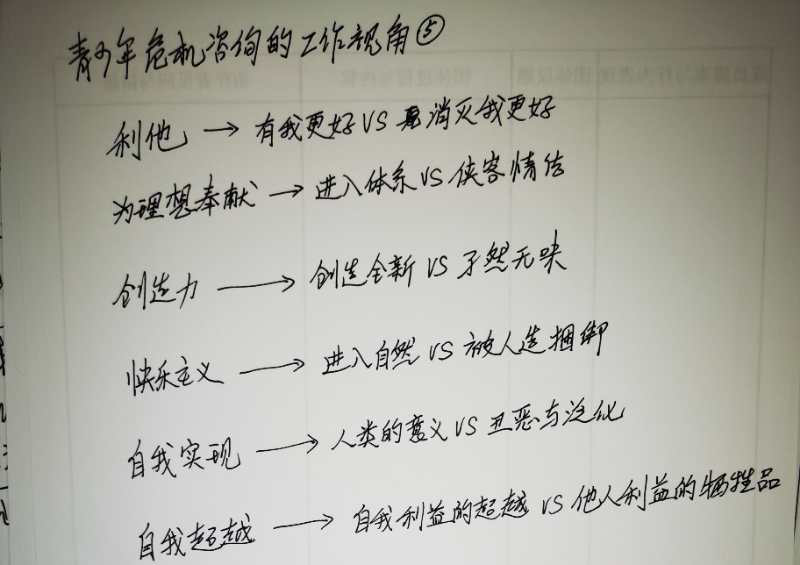 青少年危机咨询的工作视角⑤
利他 → 有我更好 VS 消灭我更好
为理想奉献 → 进入体系 VS 侠客情结
创造力 → 创造全新 VS 孑然无味
快乐主义 → 进入自然 VS 被人造捆绑
自我实现 → 人类的意义 VS 丑恶与泛化
自我超越 → 自我利益的超越 VS 他人利益的牺牲品